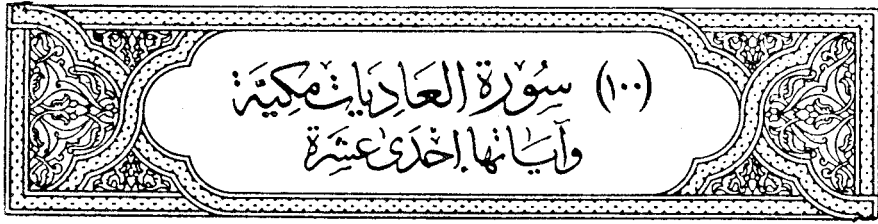 (١٠٠) سُورَة العَاديَات مَكيَّة
وَآيَاتها إحْدَى عَشرَة